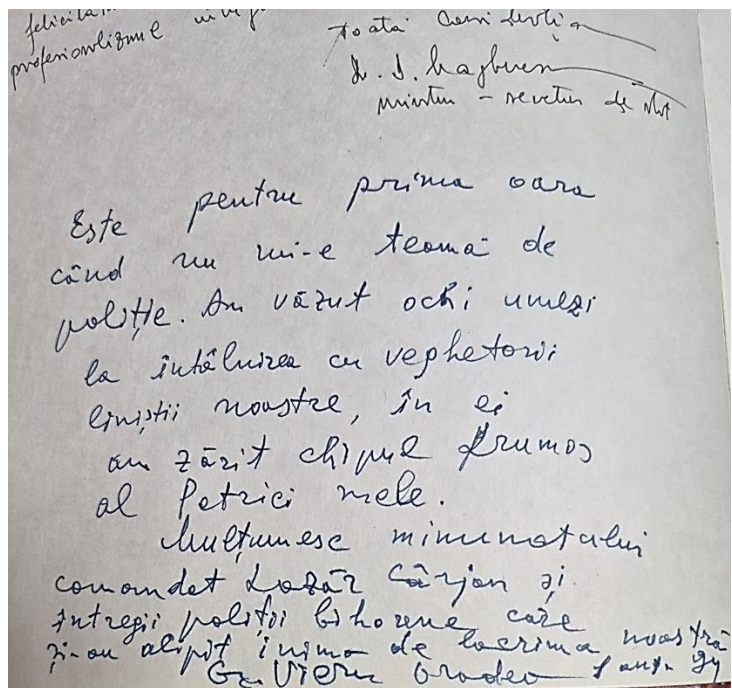 felicită
profesionlizmul
toată
L. I.
ministru - secretar de stat
Este pentru prima oara
când nu mi-e teamă de
poliție. Am văzut ochi umezi
la întâlnirea cu veghetorii
liniștii noastre, în ei
am zărit chipul frumos
al Petrici mele.
Mulțumesc minunatului
comandat Lazăr Cârjan și
întregii poliții bihorene care
și-au alipit inima de lacrima noastră
Gr. Vieru Oradea 94